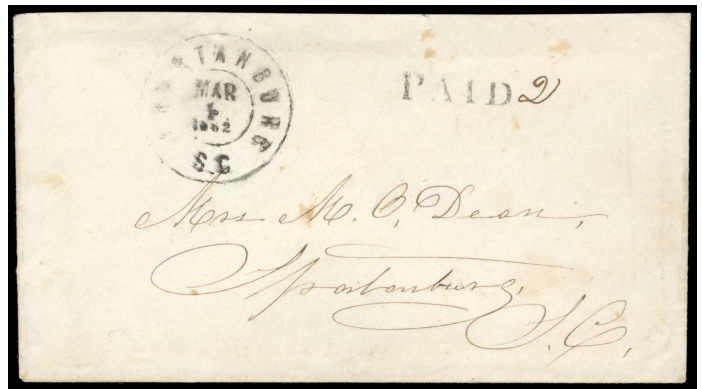 SPARTANBURG
MAR
1
1862
S.C
PAID 2
Mrs M. C. Dean,
Spartanburg,
S. C.